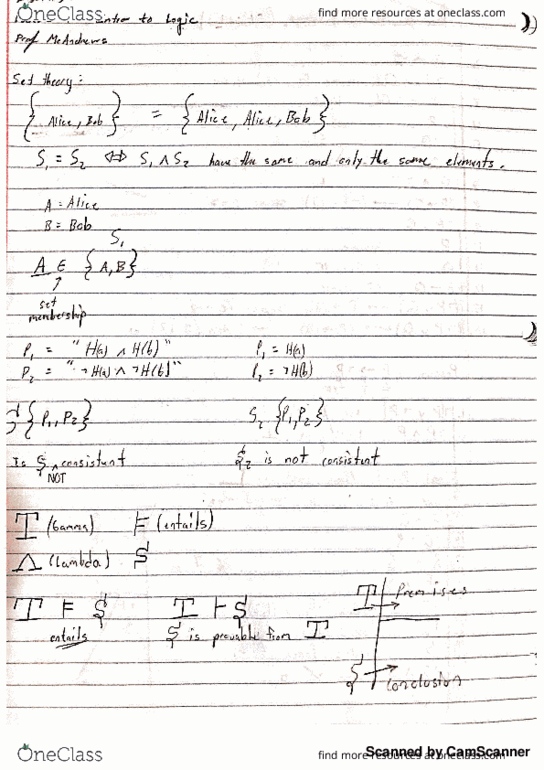 OneClass
find more resources at oneclass.com
Intro to Logic
Prof McAndrews
Set theory:
{Alice, Bob} = {Alice, Alice, Bob}
S₁ = S₂ ⇔ S₁ ∧ S₂ have the same and only the same elements.
A = Alice
B = Bob
S₁
A ∈ {A,B}
↑
set
membership
P₁ = "H(a) ∧ H(b)" P₁ = H(a)
P₂ = "¬H(a) ∧ ¬H(b)" P₂ = ¬H(b)
{P₁, P₂} S₂ {P₁, P₂}
Is S NOT consistent S₂ is not consistent
Γ (Gamma) ⊨ (entails)
Λ (Lambda) S
Γ ⊨ S Γ ⊢ S
entails S is provable from Γ
Γ → Premises
S → Conclusion
OneClass
find more resources at oneclass.com
Scanned by CamScanner